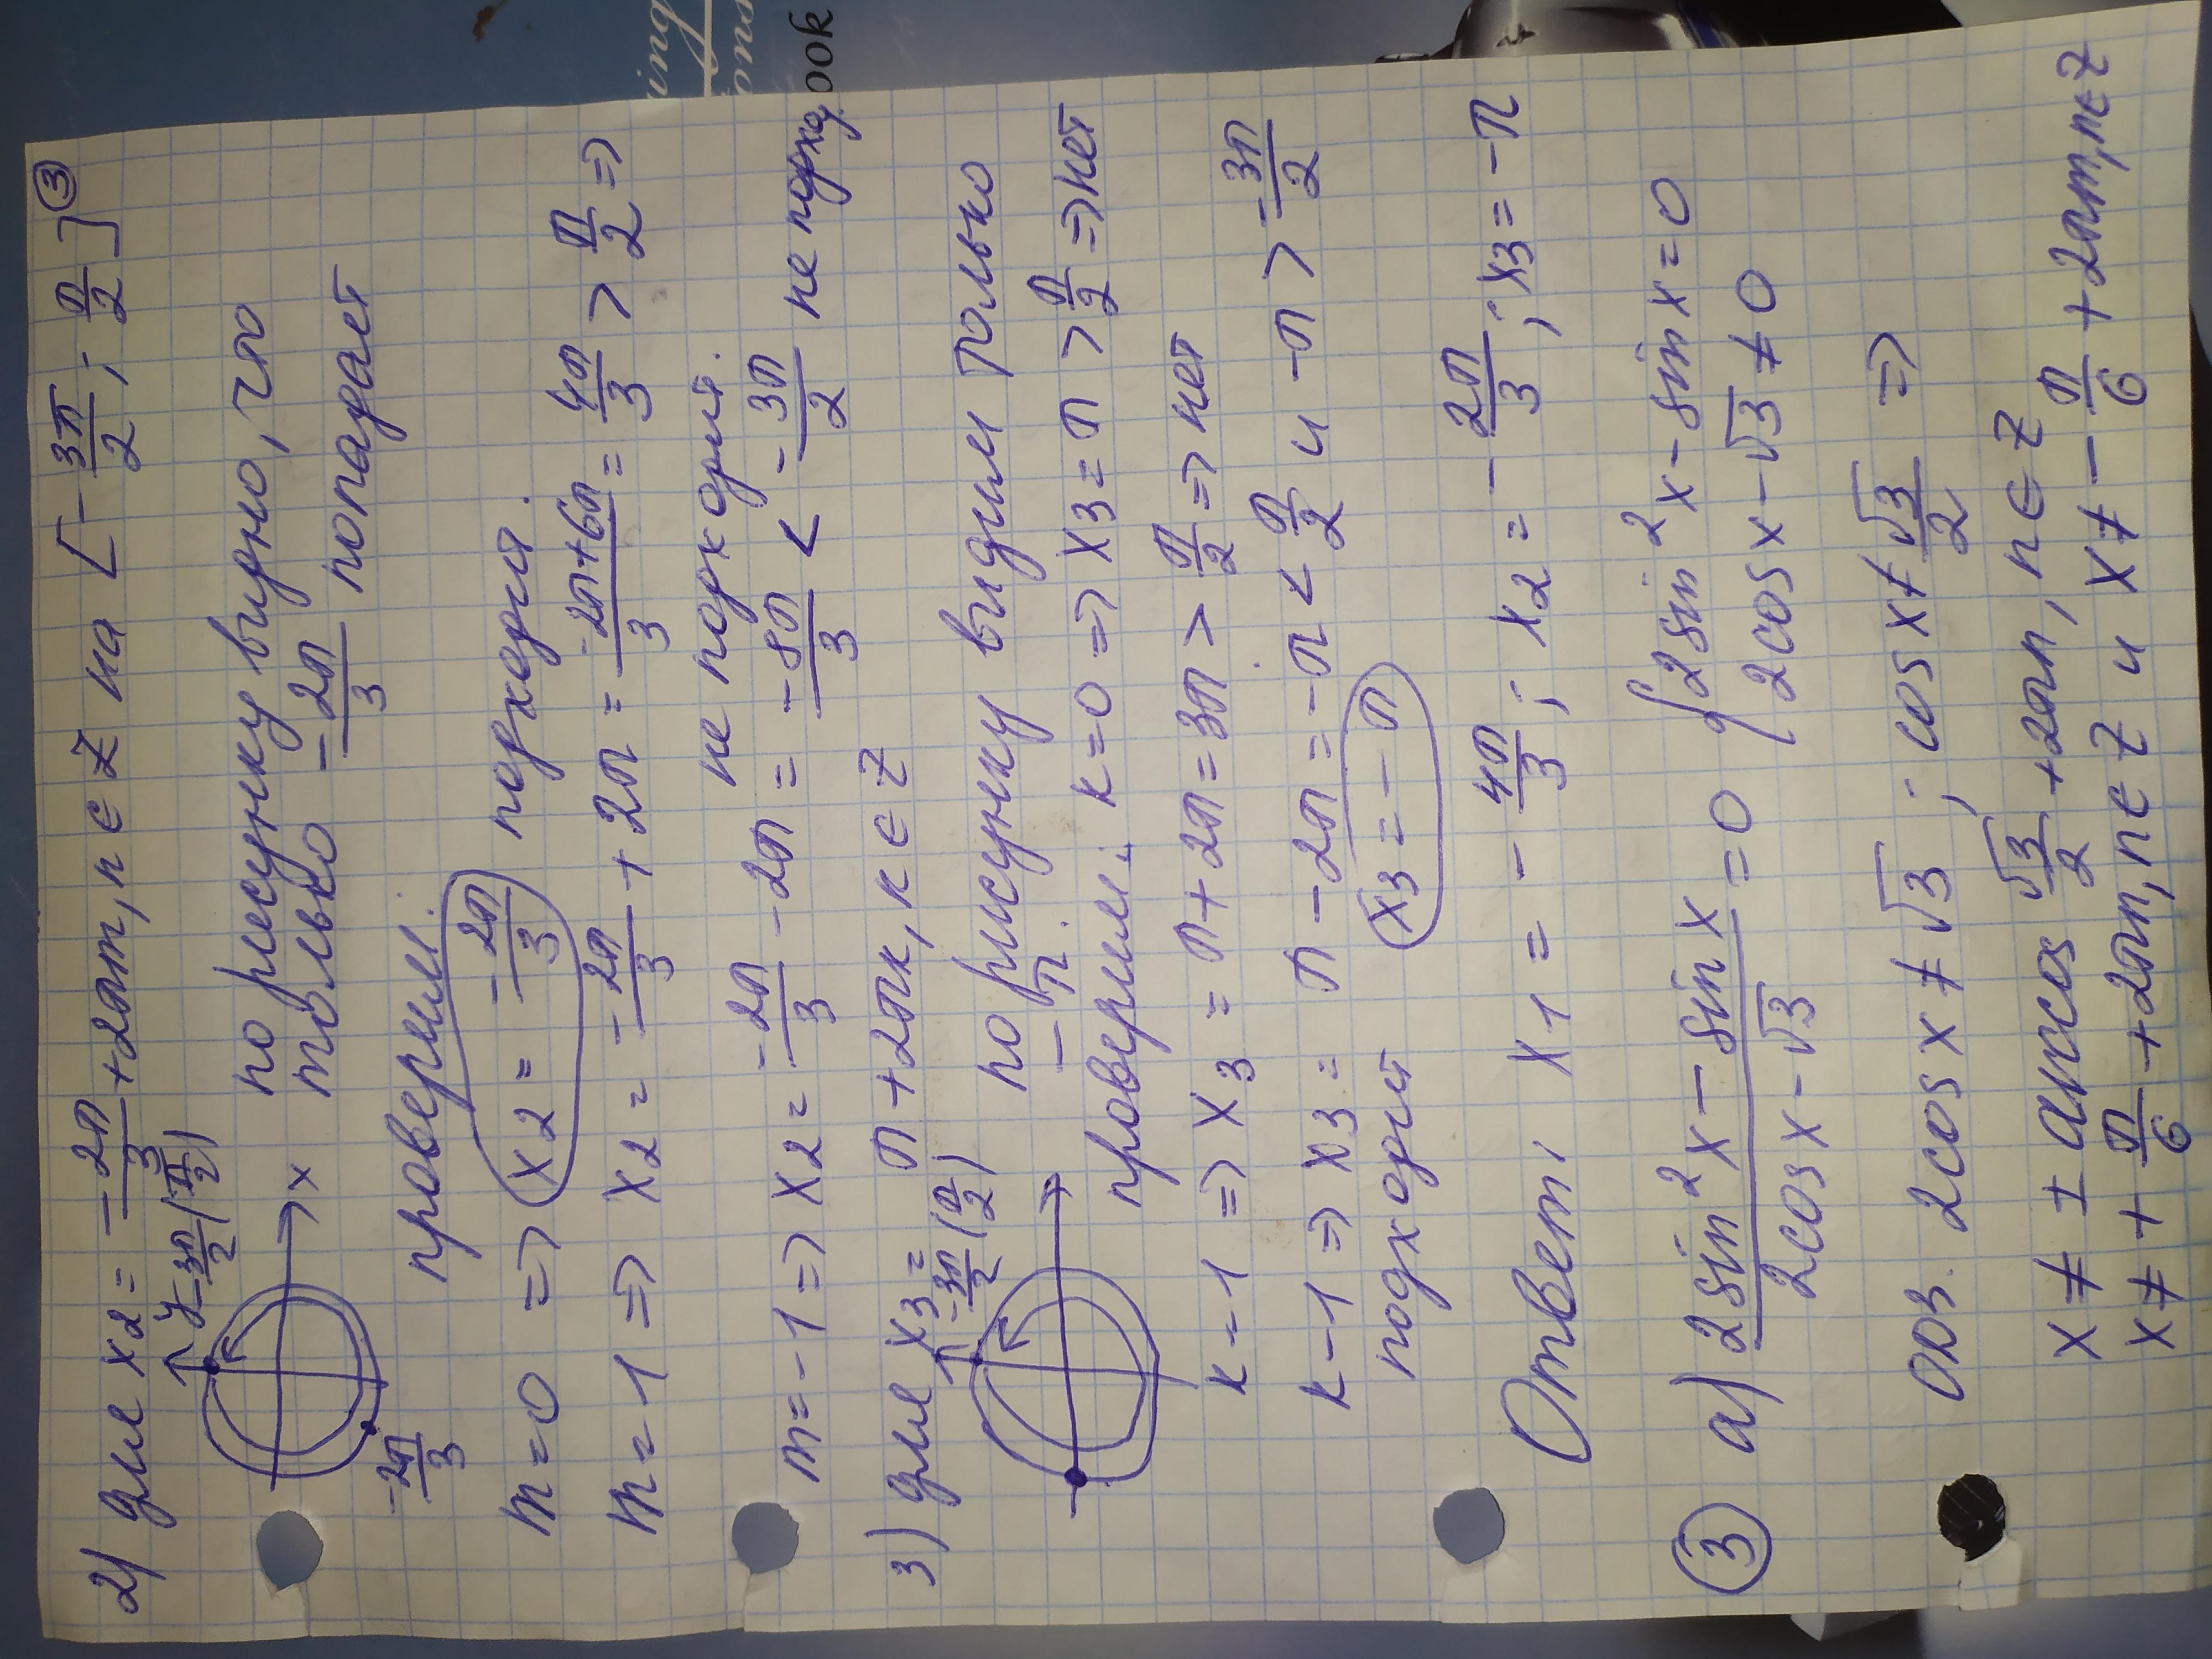 ③
2) для x₂ = -2π/3 + 2πm, n ∈ Z на [-3π/2; π/2]
y -3π/2 (π/2)
x
-2π/3
по рисунку видно, что
только -2π/3 попадает
проверим:
m = 0 => x₂ = -2π/3 подходит.
m = 1 => x₂ = -2π/3 + 2π = -2π+6π/3 = 4π/3 > π/2 =>
не подходит.
m = -1 => x₂ = -2π/3 - 2π = -8π/3 < -3π/2 не подход
3) для x₃ = π + 2πk, k ∈ Z
-3π/2 (π/2)
по рисунку видим только
-π.
проверим: k = 0 => x₃ = π > π/2 => нет
k - 1 => x₃ = π + 2π = 3π > π/2 => нет
k - 1 => x₃ = π - 2π = -π < π/2 и -π > -3π/2
подходит x₃ = -π
Ответ: x₁ = -4π/3; x₂ = -2π/3; x₃ = -π
③ а) 2sin²x - sin x / 2cos x - √3 = 0 { 2sin²x - sin x = 0
2cos x - √3 ≠ 0
ОДЗ. 2cos x ≠ √3; cos x ≠ √3/2 =>
x ≠ ± arccos √3/2 + 2πn, n ∈ Z
x ≠ + π/6 + 2πn, n ∈ Z и x ≠ - π/6 + 2πm, m ∈ Z
ing
ons
ook